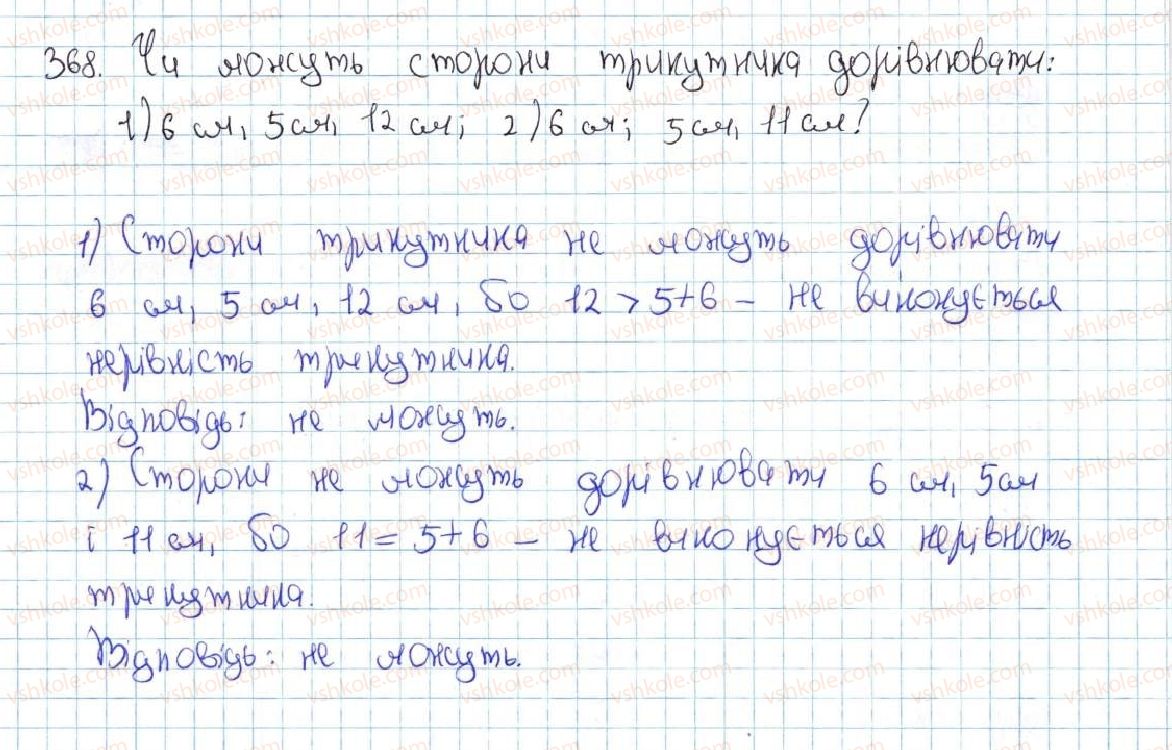 368. Чи можуть сторони трикутника дорівнювати:
1) 6 см, 5см, 12 см; 2) 6 см; 5см, 11 см?
1) Сторони трикутника не можуть дорівнювати
6 см, 5 см, 12 см, бо 12 > 5+6 – не виконується
нерівність трикутника.
Відповідь: не можуть.
2) Сторони не можуть дорівнювати 6 см, 5см
і 11 см, бо 11 = 5+6 – не виконується нерівність
трикутника.
Відповідь: не можуть.
vshkole.com